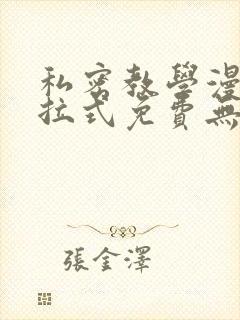 私密教學漫
拉式免費無
張金澤